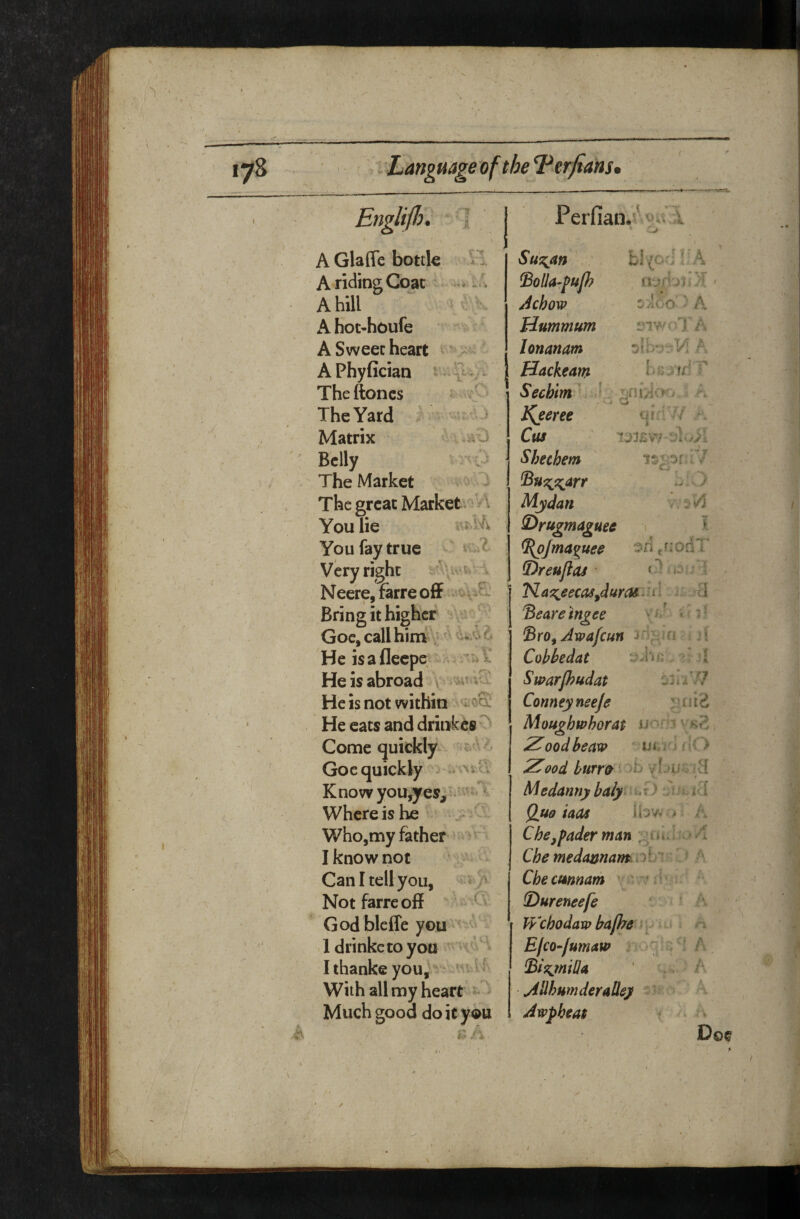 178 Language of the Perſians.
Engliſh. Perſian.
A Glaſſe bottle Suzan
A riding Coat Bolla-puſh
A hill Achow
A hot-houſe Hummum
A Sweet heart Ionanam
A Phyſician Hackeam
The ſtones Sechim
The Yard Keeree
Matrix Cus
Belly Shechem
The Market Buzzarr
The great Market Mydan
You lie Drugmaguee
You ſay true Roſmaguee
Very right Dreuſtas
Neere, farre off Nazeecas, duras
Bring it higher Beare ingee
Goe, call him Bro, Awaſcun
He is aſleepe Cobbedat
He is abroad Swarſhudat
He is not within Conney neeſe
He eats and drinkes Moughwhorat
Come quickly Zood beaw
Goe quickly Zood burro
Know you, yes, Medanny baly
Where is he Quo iaas
Who, my father Che, pader man
I know not Che medannam
Can I tell you, Che cunnam
Not farre off Dureneeſe
God bleſſe you W'chodaw baſhe
I drinke to you Eſco-ſumaw
I thanke you, Bizmilla
With all my heart Allhumderalley
Much good do it you Awpheat
Doe